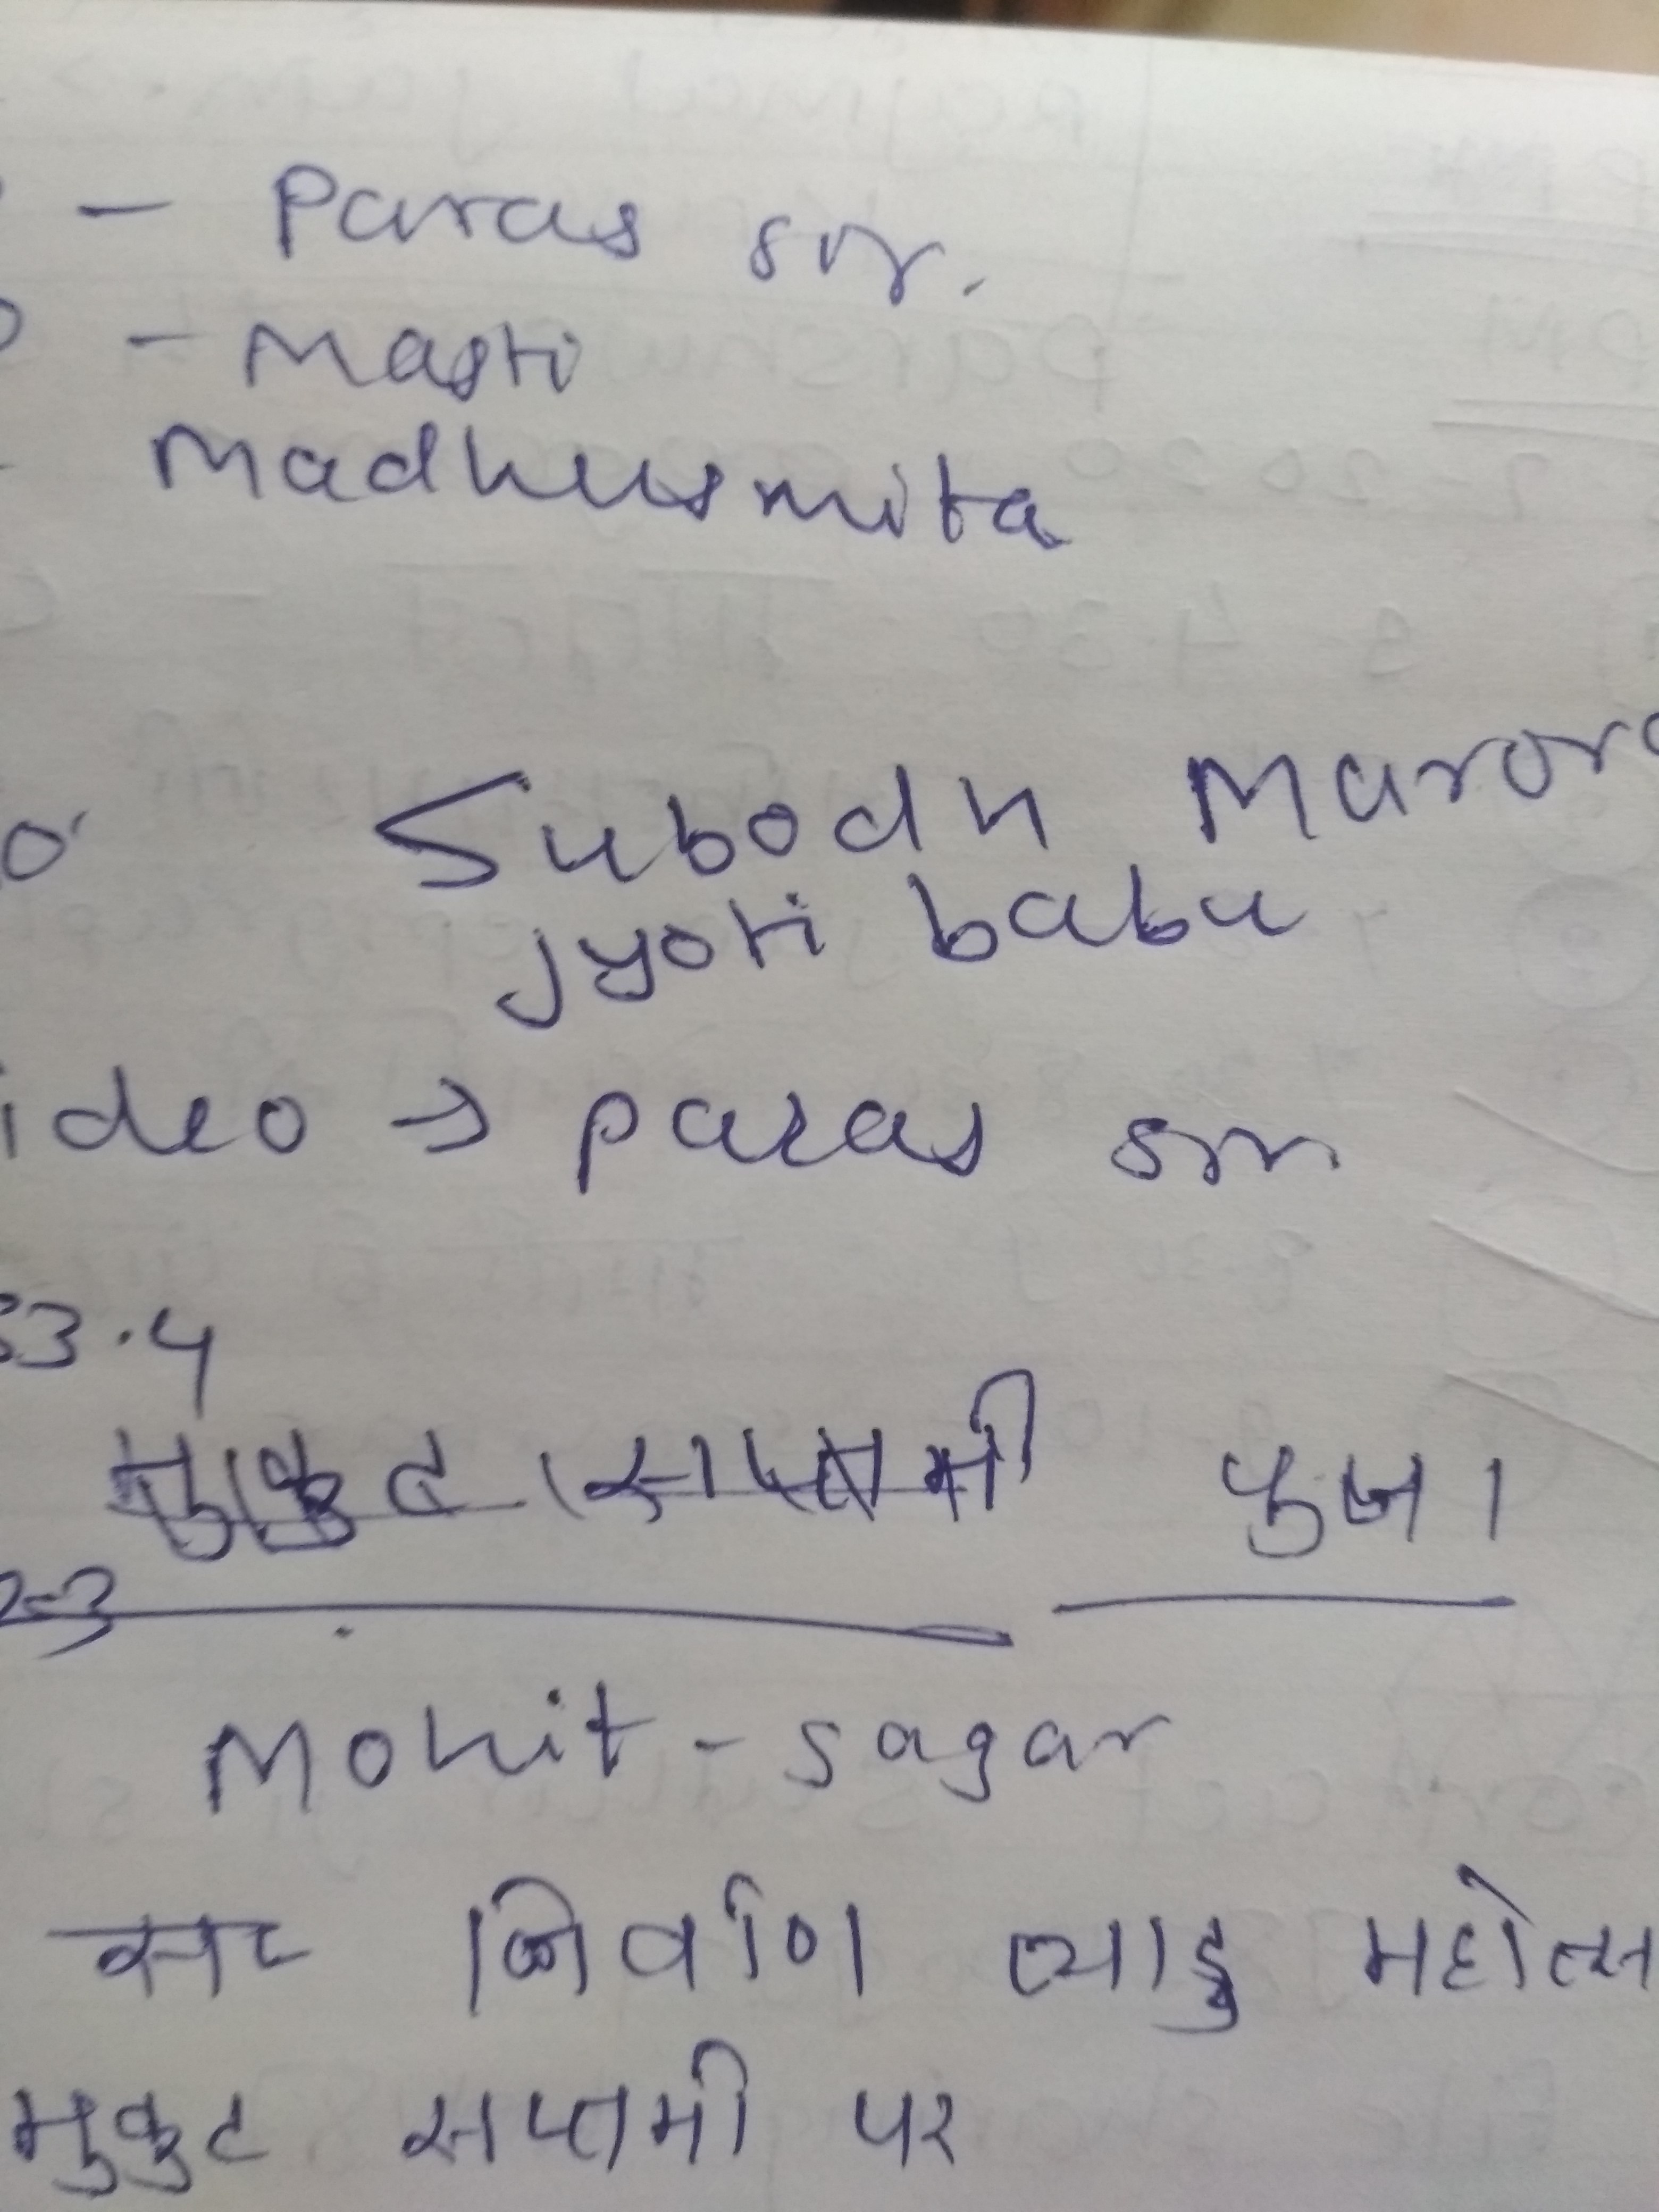 - Paras sir.
- Masti
Madhusmita
Subodh Maror
Jyoti babu
ideo → paras sir
33.4
मुकुट सप्तमी पुजा
2-3
Mohit - Sagar
निर्वाण लाडु महोत्स
मुकुट सप्तमी पर